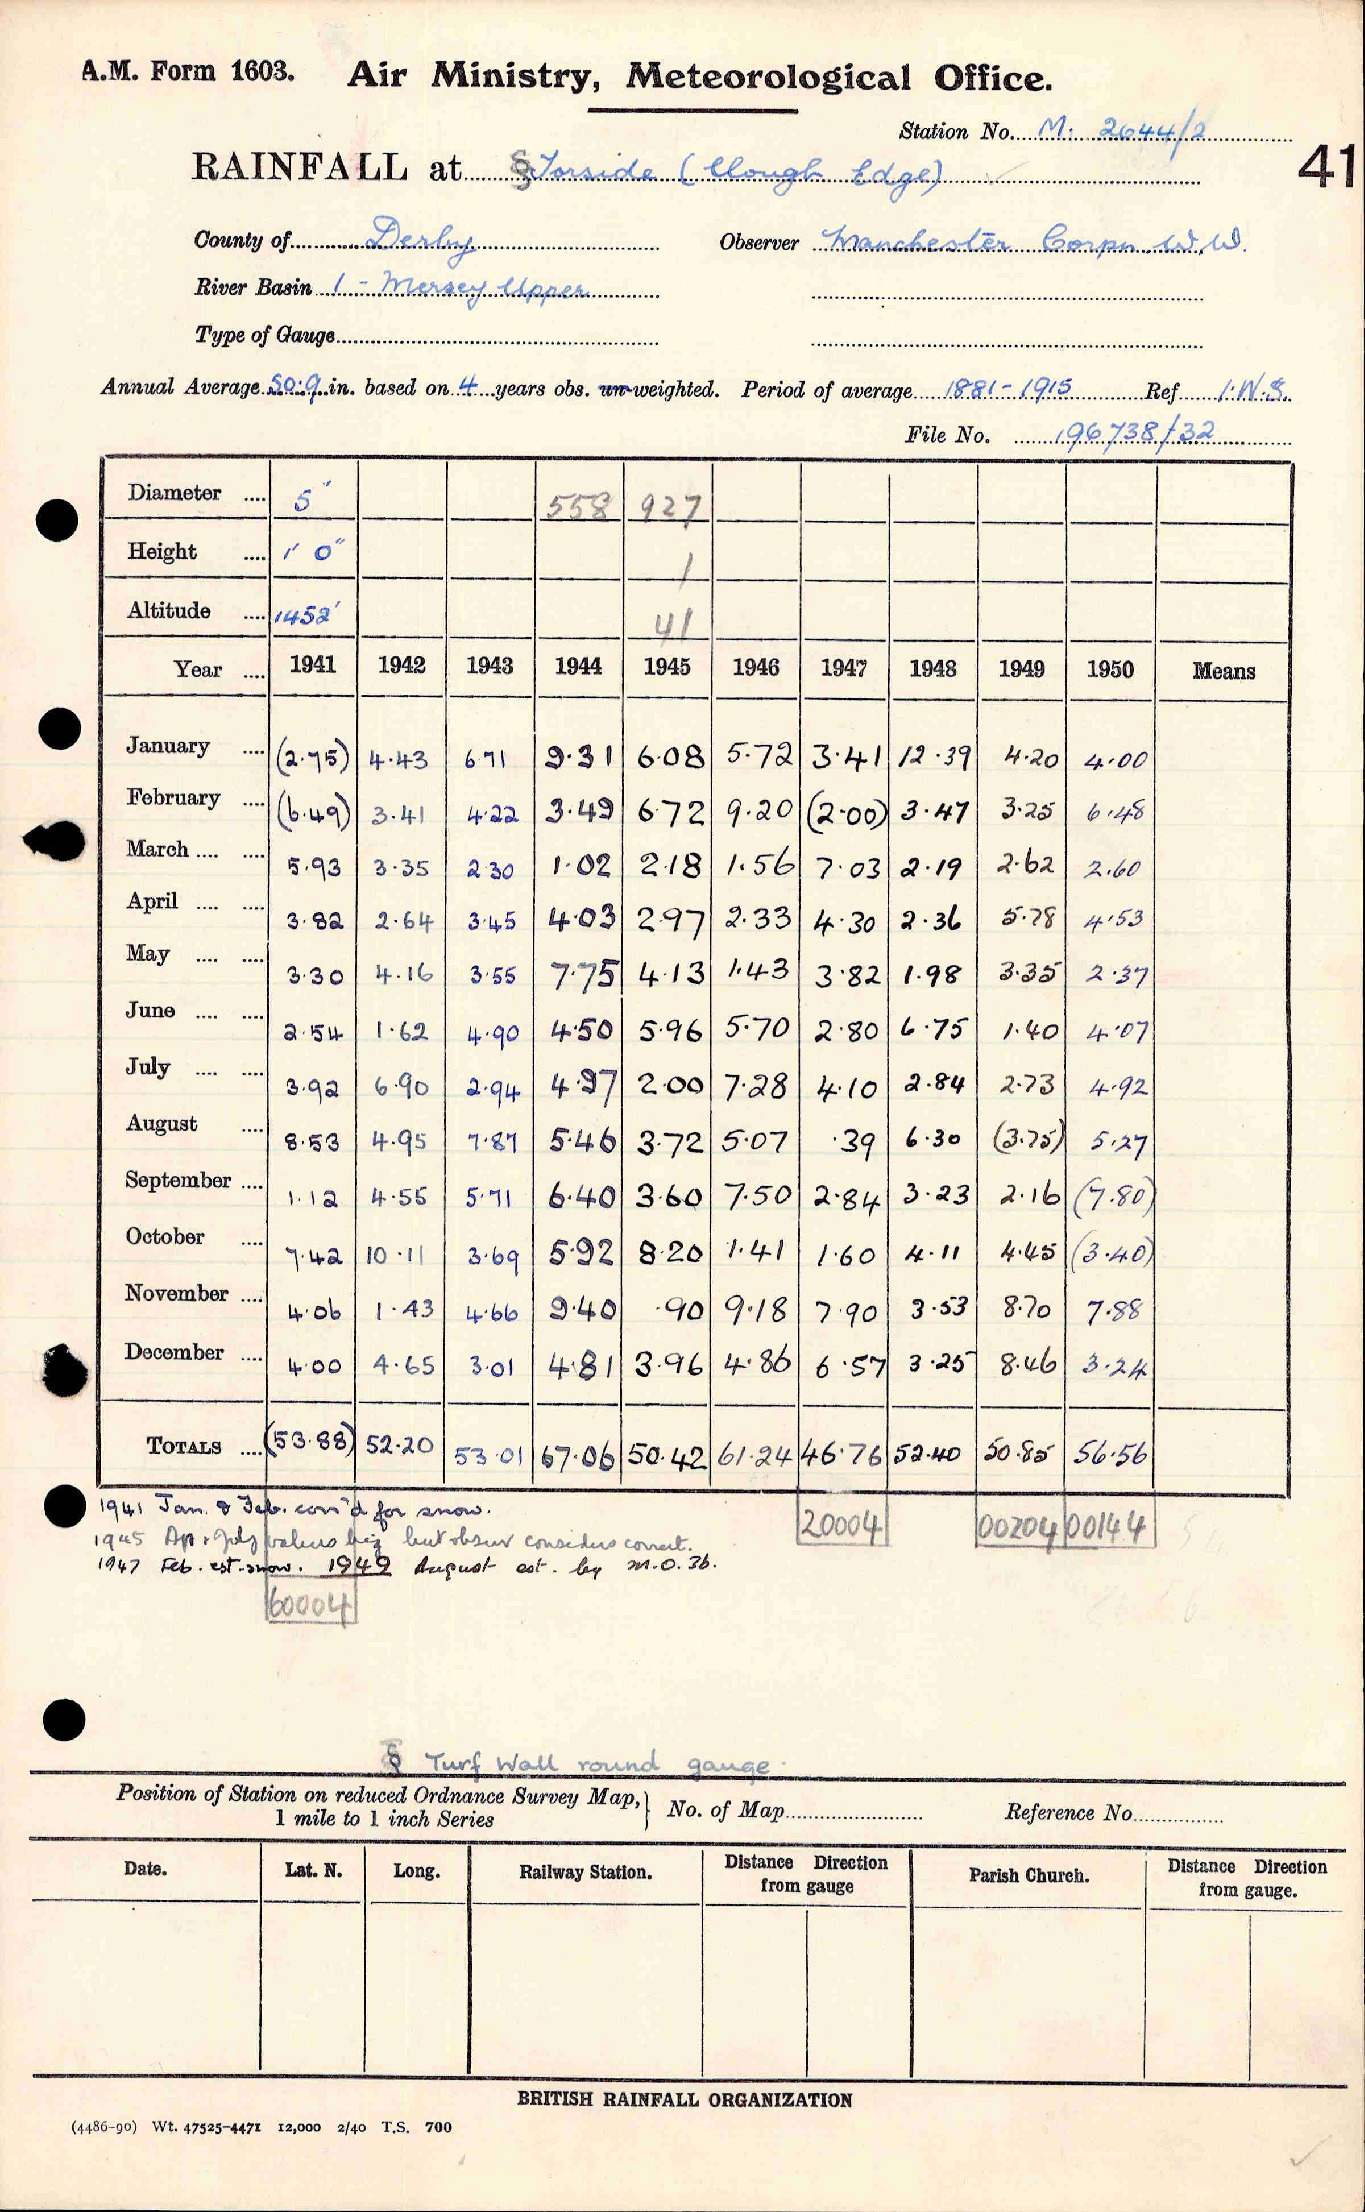 A.M. Form 1603. Air Ministry, Meteorological Office.
Station No. M. 2644/2
41
RAINFALL at § Torside (Clough Edge)
County of Derby Observer Manchester Corpn. W.W.
River Basin 1 - Mersey Upper
Type of Gauge
Annual Average 50.9 in. based on 4 years obs. un-weighted. Period of average 1881-1915 Ref I.W.S.
File No. 196738/32
Diameter .... 5" 558 927
Height .... 1' 0" 1
Altitude .... 1452' 41
Year .... 1941 1942 1943 1944 1945 1946 1947 1948 1949 1950 Means
January .... (2.75) 4.43 6.71 9.31 6.08 5.72 3.41 12.39 4.20 4.00
February .... (6.49) 3.41 4.22 3.49 6.72 9.20 (2.00) 3.47 3.25 6.48
March .... .... 5.93 3.35 2.30 1.02 2.18 1.56 7.03 2.19 2.62 2.60
April .... .... 3.82 2.64 3.45 4.03 2.97 2.33 4.30 2.36 5.78 4.53
May .... .... 3.30 4.16 3.55 7.75 4.13 1.43 3.82 1.98 3.35 2.37
June .... .... 2.54 1.62 4.90 4.50 5.96 5.70 2.80 6.75 1.40 4.07
July .... .... 3.92 6.90 2.94 4.97 2.00 7.28 4.10 2.84 2.73 4.92
August .... 8.53 4.95 7.87 5.46 3.72 5.07 .39 6.30 (3.75) 5.27
September .... 1.12 4.55 5.71 6.40 3.60 7.50 2.84 3.23 2.16 (7.80)
October .... 7.42 10.11 3.69 5.92 8.20 1.41 1.60 4.11 4.45 (3.40)
November .... 4.06 1.43 4.66 9.40 .90 9.18 7.90 3.53 8.70 7.88
December .... 4.00 4.65 3.01 4.81 3.96 4.86 6.57 3.25 8.46 3.24
TOTALS .... (53.88) 52.20 53.01 67.06 50.42 61.24 46.76 52.40 50.85 56.56
1941 Jan. & Feb. corr'd for snow. 20004 00204 00144
1945 Ap. & July values big but obser considers correct.
1947 Feb. est. snow. 1949 August est. by M.O.3b.
60004
§ Turf Wall round gauge.
Position of Station on reduced Ordnance Survey Map, 1 mile to 1 inch Series } No. of Map Reference No.
Date. Lat. N. Long. Railway Station. Distance Direction from gauge Parish Church. Distance Direction from gauge.
BRITISH RAINFALL ORGANIZATION
(4486-90) Wt. 47525-4471 12,000 2/40 T.S. 700